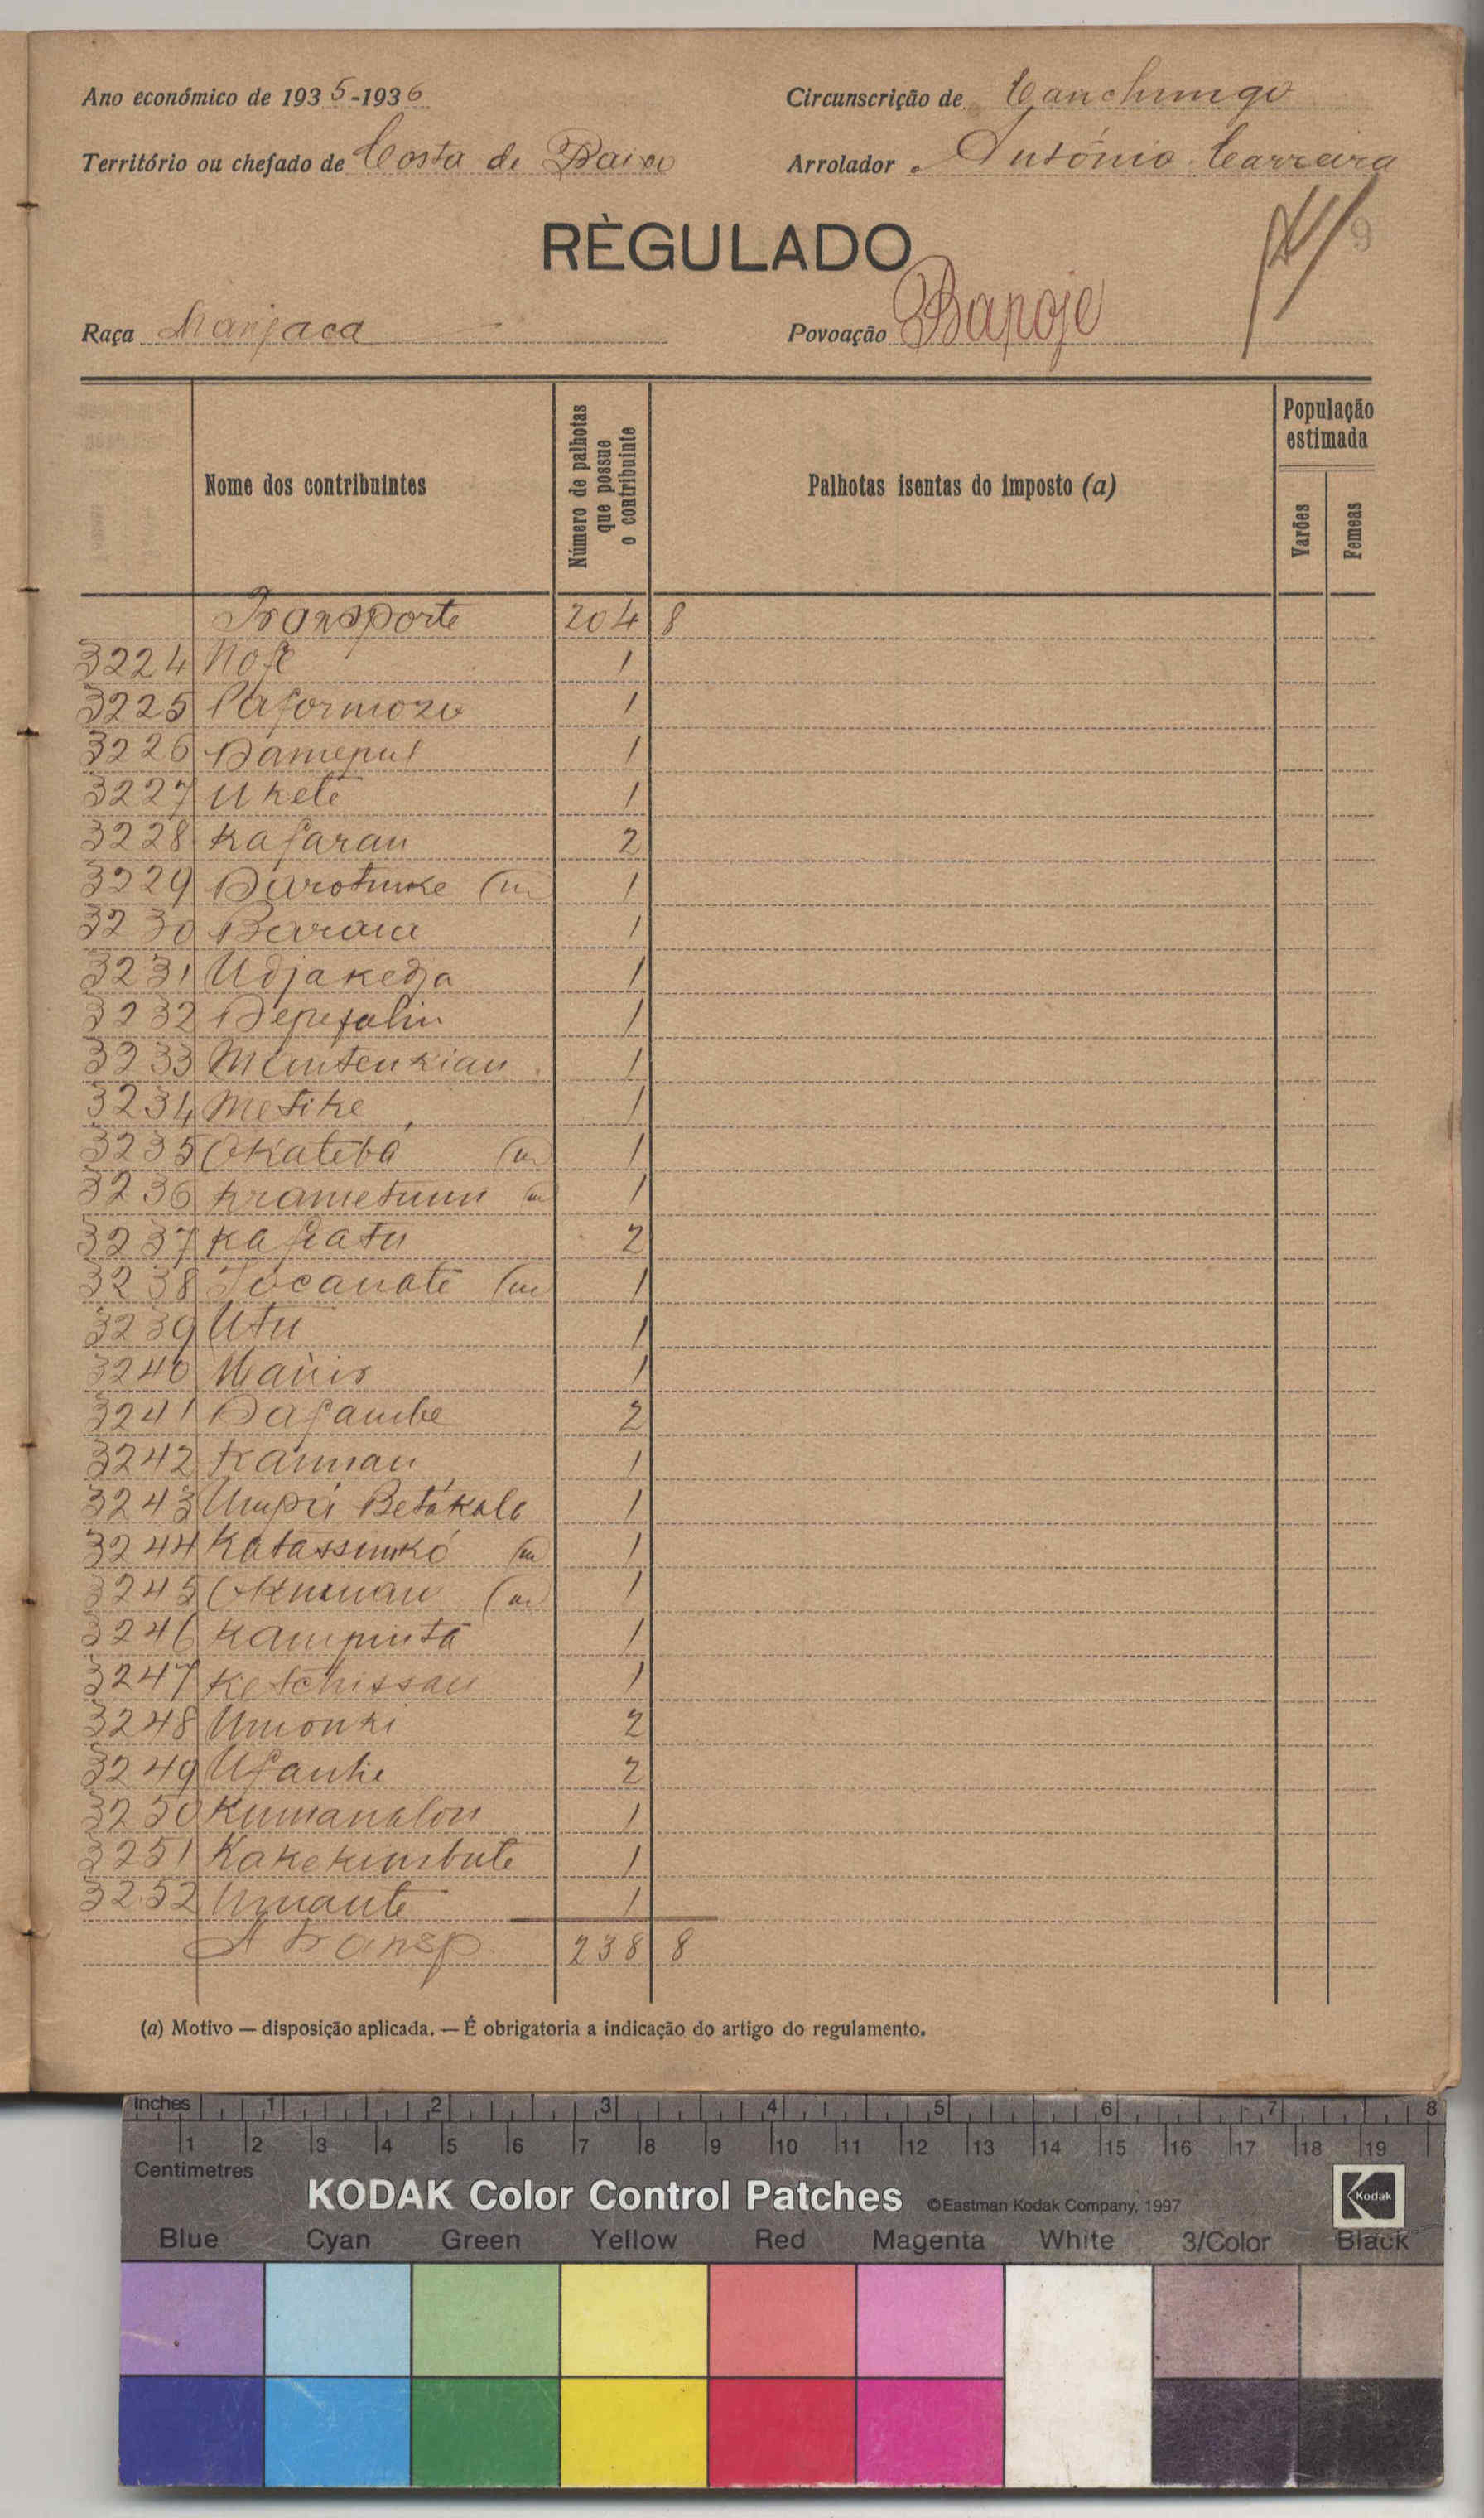 Ano económico de 1935-1936
Circunscrição de Canchungo
Território ou chefado de Costa de Baixo
Arrolador António Carreira
9
RÈGULADO
Raça Manjaca
Povoação Bapoje
Nome dos contribuintes
Número de palhotas que possue o contribuinte
Palhotas isentas do imposto (a)
População estimada
Varões
Femeas
Transporte 204 8
3224 Nofe 1
3225 Paformozo 1
3226 Damepul 1
3227 Ukete 1
3228 Kafaran 2
3229 1
3230 Baraia 1
3231 Udjakedja 1
3232 Depefalin 1
3233 Mantenkian 1
3234 Metike 1
3235 Okatebá (m 1
3236 Krametum (m 1
3237 Kafiatu 2
3238 Tocanate (m 1
3239 Utu 1
3240 1
3241 Dafambe 2
3242 Kaman 1
3243 Umpú Betákale 1
3244 Katassumkó (m 1
3245 (m 1
3246 Kampintá 1
3247 Ketchissau 1
3248 Umonki 2
3249 Ufanke 2
3250 Kumanalon 1
3251 Kakekumbute 1
3252 Umante 1
A transp. 238 8
(a) Motivo — disposição aplicada. — É obrigatoria a indicação do artigo do regulamento.
Inches 1 2 3 4 5 6 7 8
1 2 3 4 5 6 7 8 9 10 11 12 13 14 15 16 17 18 19
Centimetres
KODAK Color Control Patches ©Eastman Kodak Company, 1997 Kodak
Blue Cyan Green Yellow Red Magenta White 3/Color Black